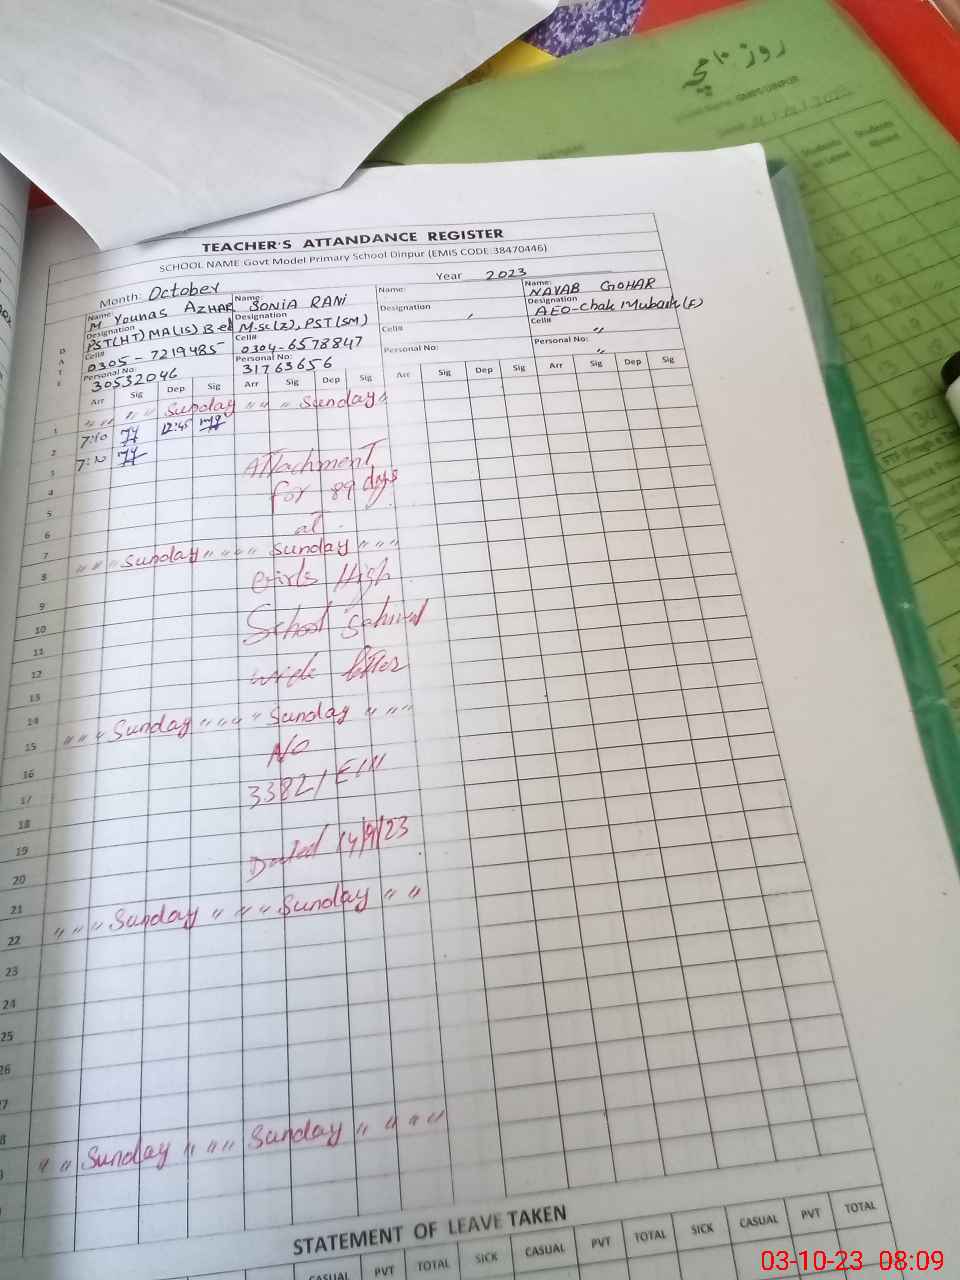 روز نامچہ
GMPS DINPUR
Students
on Leave
Students
Absent
TEACHER'S ATTANDANCE REGISTER
SCHOOL NAME:Govt Model Primary School Dinpur (EMIS CODE:38470446)
Month: October Year 2023
Name: M Younas AZHAR
Designation PST(HT) MA(IS) B ed
Cell# 0305-7219485
Personal No: 30532046
Name: SONIA RANI
Designation M.sc(Z), PST(SM)
Cell# 0304-6578847
Personal No: 31763656
Name:
Designation
Cell#
Personal No:
Name: NAYAB GOHAR
Designation AEO-Chak Mubarik (F)
Cell# "
Personal No: "
DATE
Arr Sig Dep Sig Arr Sig Dep Sig Arr Sig Dep Sig Arr Sig Dep Sig
1 " " " " Sunday " " " Sunday "
2 7:10 12:45
3 7:10
Attachment
4
for 89 days
5
6
at
7
8 " " " Sunday " " " " Sunday " " "
Girls High
9
10
School Sahiwal
11
12
wide letter
13
14
15 " " " Sunday " " " " Sunday " " "
No
16
3382/EIII
17
18
19
Dated 14/9/23
20
21
22 " " " Sunday " " " Sunday " "
23
24
25
26
7
8
" " Sunday " " " Sunday " " " "
STATEMENT OF LEAVE TAKEN
CASUAL PVT TOTAL SICK CASUAL PVT TOTAL SICK CASUAL PVT TOTAL
03-10-23 08:09